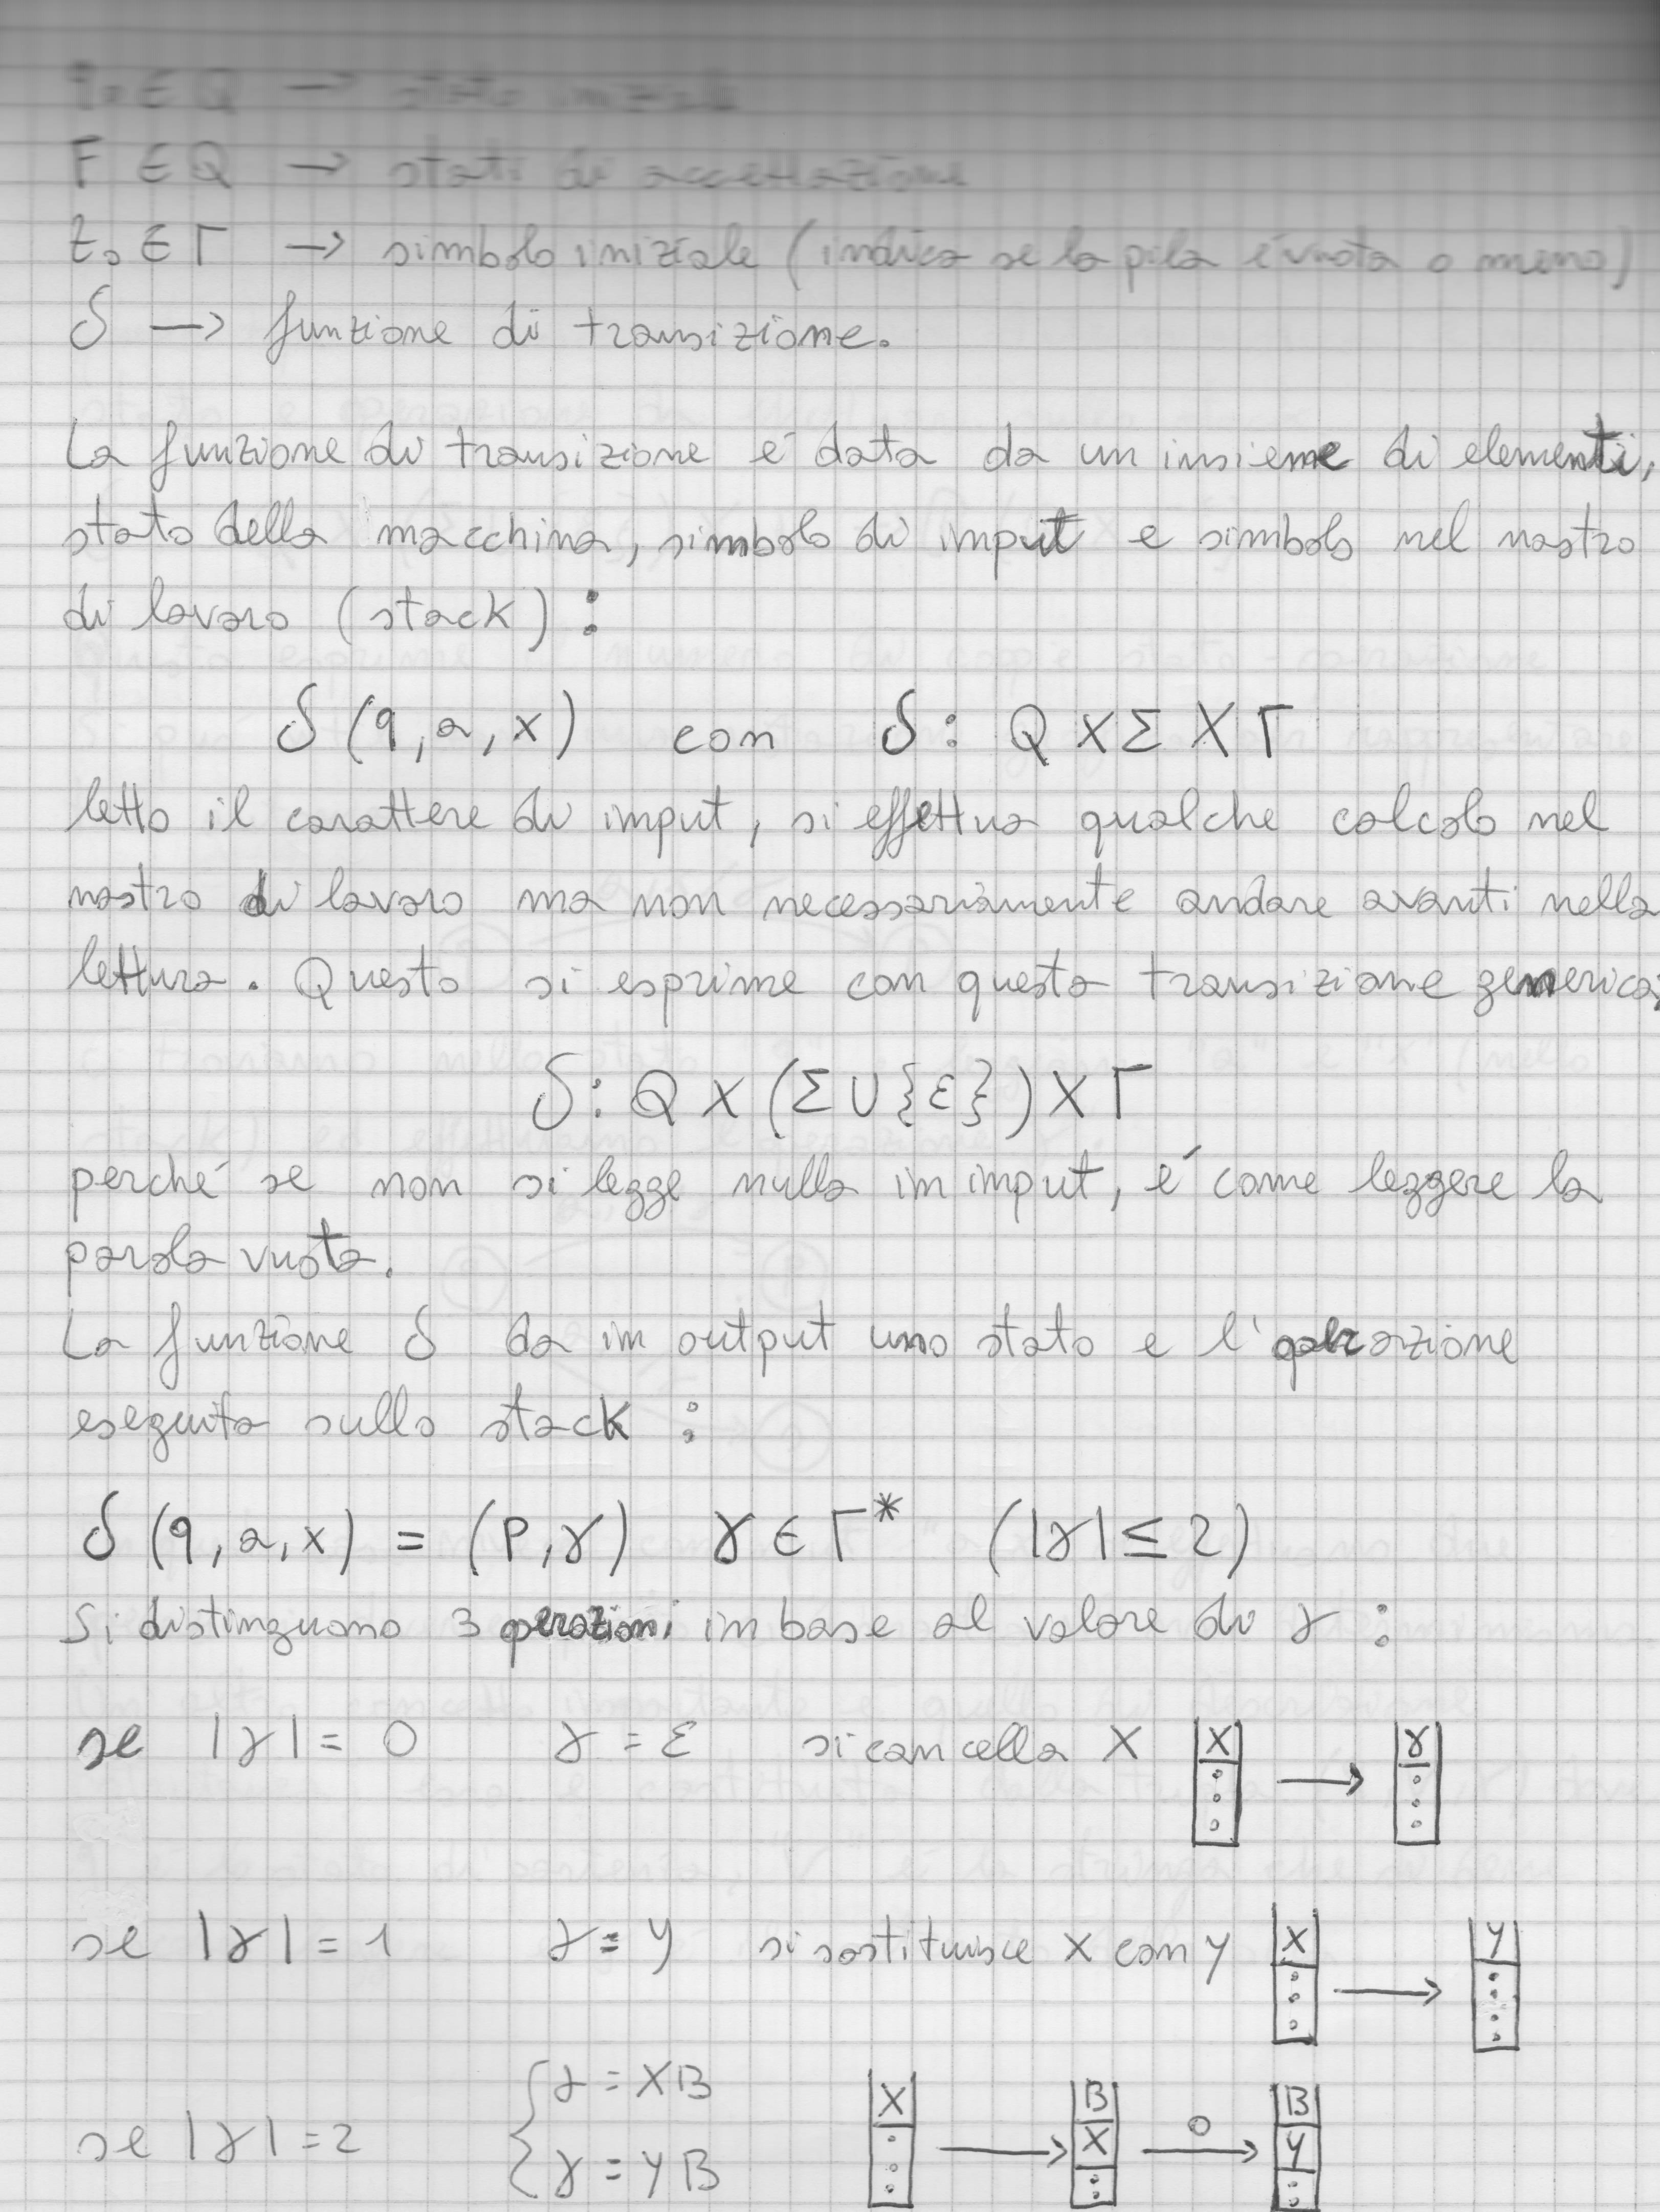 q₀ ∈ Q → stato iniziale
F ∈ Q → stati di accettazione
t₀ ∈ Γ → simbolo iniziale (indica se la pila é vuota o meno)
δ → funzione di transizione.
La funzione di transizione é data da un insieme di elementi,
stato della macchina, simbolo di imput e simbolo nel nastro
di lavoro (stack) :
δ (q, a, x) con δ : Q X Σ X Γ
letto il carattere di imput, si effettua qualche calcolo nel
nastro di lavoro ma non necessariamente andare avanti nella
lettura. Questo si esprime con questa transizione generica;
δ : Q X (Σ U {ε}) X Γ
perché se non si legge nulla in imput, é come leggere la
parola vuota.
La funzione δ da in output uno stato e l'operazione
eseguita sullo stack :
δ (q, a, x) = (P, γ) γ ∈ Γ* (|γ| ≤ 2)
Si distinguono 3 operazioni in base al valore di γ :
se |γ| = 0 γ = ε si cancella X X → γ
se |γ| = 1 γ = y si sostituisce X con y X → y
se |γ| = 2 { γ = XB γ = YB X → B X o → B y